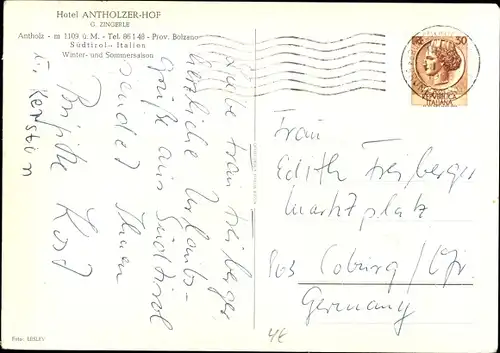 Hotel ANTHOLZER-HOF
G. ZINGERLE
Antholz - m 1109 ü. M. - Tel. 86148 - Prov. Bolzano
Südtirol - Italien
Winter- und Sommersaison
Liebe Frau Freiberger
herzliche Urlaubs-
grüße aus Südtirol
sendet Ihnen
Brigitte
u. Kerstin
Frau
Edith Freiberger
Marktplatz
Coburg / Ofr.
Germany
4E
50
ITALIANA